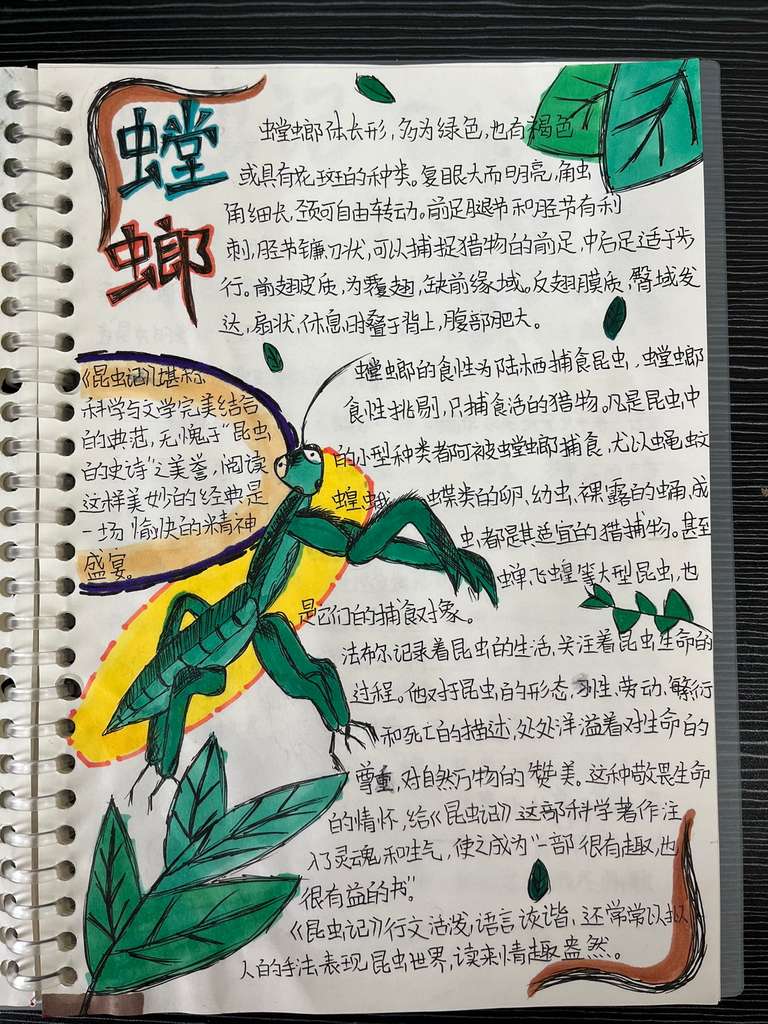 螳
螂
螳螂体长形，多为绿色，也有褐色
或具有花斑的种类。复眼大而明亮，触
角细长，颈可自由转动。前足腿节和胫节有利
刺，胫节镰刀状，可以捕捉猎物的前足，中后足适于步
行。前翅皮质，为覆翅，缺前缘域。反翅膜质，臀域发
达，扇状，休息时叠于背上，腹部肥大。
《昆虫记》堪称
科学与文学完美结合
的典范，无愧于“昆虫
的史诗”之美誉，阅读
这样美妙的经典是
一场愉快的精神
盛宴。
螳螂的食性为陆栖捕食昆虫，螳螂
食性挑剔，只捕食活的猎物。凡是昆虫中
的小型种类都可被螳螂捕食，尤以蝇蚊
蝗蛾 蝶类的卵、幼虫、裸露的蛹、成
虫，都是其适宜的猎捕物。甚至
蝉飞蝗等大型昆虫，也
是它们的捕食对象。
法布尔记录着昆虫的生活，关注着昆虫生命的
过程。他对于昆虫的形态、习性、劳动、繁衍
和死亡的描述，处处洋溢着对生命的
尊重，对自然万物的赞美。这种敬畏生命
的情怀，给《昆虫记》这部科学著作注
入了灵魂和生气，使之成为“一部很有趣，也
很有益的书”。
《昆虫记》行文活泼，语言诙谐，还常常以拟
人的手法表现昆虫世界，读来情趣盎然。